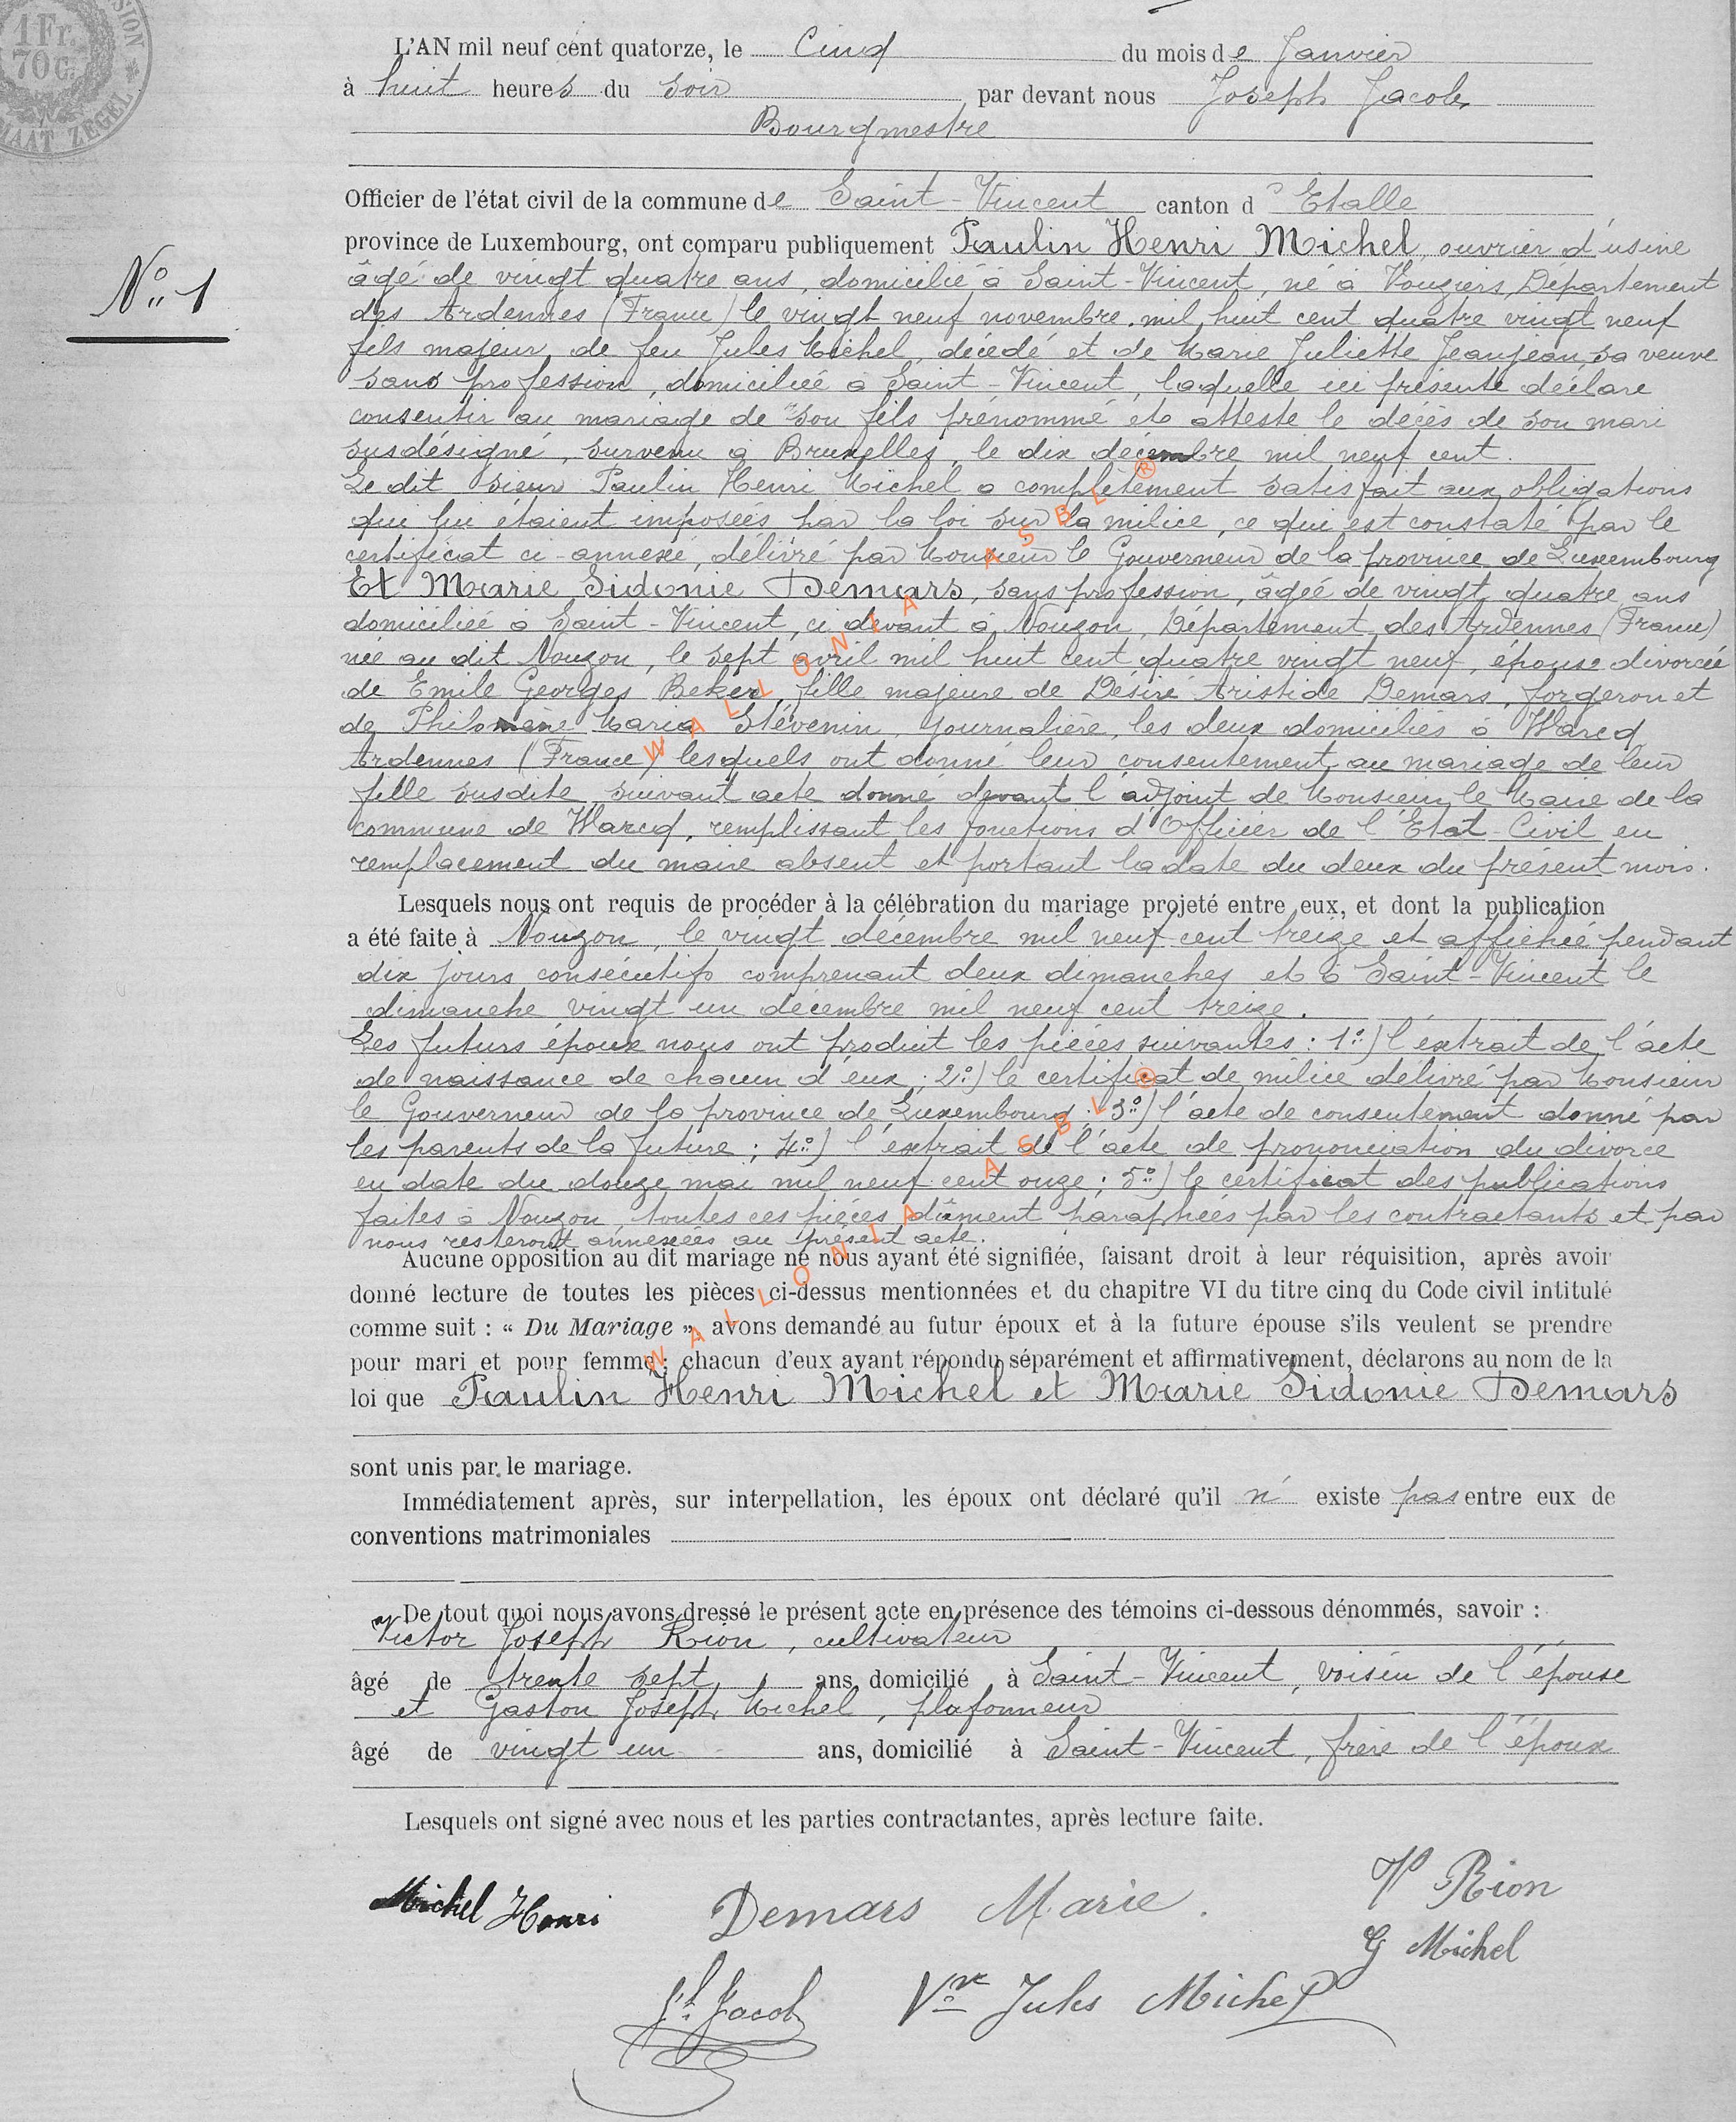 1 Fr.
70 C.
ZEGEL
L'AN mil neuf cent quatorze, le Cinq du mois de Janvier
à huit heures du soir par devant nous Joseph Jacob,
Bourgmestre
Officier de l'état civil de la commune de Saint-Vincent canton d'Etalle
province de Luxembourg, ont comparu publiquement Paulin Henri Michel, ouvrier d'usine
N° 1
âgé de vingt quatre ans, domicilié à Saint-Vincent, né à Vouziers, Département
des Ardennes (France) le vingt neuf novembre mil huit cent quatre vingt neuf
fils majeur de feu Jules Michel, décédé et de Marie Juliette Jeanjean, sa veuve
sans profession, domiciliée à Saint-Vincent, laquelle ici présente déclare
consentir au mariage de son fils prénommé et atteste le décès de son mari
susdésigné, survenu à Bruxelles, le dix décembre mil neuf cent.
Le dit sieur Paulin Henri Michel a complètement satisfait aux obligations
qui lui étaient imposées par la loi sur la milice, ce qui est constaté par le
certificat ci-annexé, délivré par Monsieur le Gouverneur de la province de Luxembourg
Et Marie Sidonie Demars, sans profession, âgée de vingt quatre ans
domiciliée à Saint-Vincent, ci devant à Nouzon, Département des Ardennes (France)
née au dit Nouzon, le sept avril mil huit cent quatre vingt neuf, épouse divorcée
de Emile Georges Beker, fille majeure de Désiré Aristide Demars, forgeron et
de Philomène Maria Stévenin, journalière, les deux domiciliés à Warcq
Ardennes (France) lesquels ont donné leur consentement au mariage de leur
fille susdite suivant acte donné devant l'adjoint de Monsieur le Maire de la
commune de Warcq, remplissant les fonctions d'Officier de l'Etat-Civil en
remplacement du maire absent et portant la date du deux du présent mois.
Lesquels nous ont requis de procéder à la célébration du mariage projeté entre eux, et dont la publication
a été faite à Nouzon, le vingt décembre mil neuf cent treize et affichée pendant
dix jours consécutifs comprenant deux dimanches et à Saint-Vincent le
dimanche vingt un décembre mil neuf cent treize.
Les futurs époux nous ont produit les pièces suivantes : 1°) l'extrait de l'acte
de naissance de chacun d'eux ; 2°) le certificat de milice délivré par Monsieur
le Gouverneur de la province de Luxembourg ; 3°) l'acte de consentement donné par
les parents de la future ; 4°) l'extrait de l'acte de prononciation du divorce
en date du douze mai mil neuf cent onze ; 5°) le certificat des publications
faites à Nouzon, toutes ces pièces dûment paraphées par les contractants et par
nous resteront annexées au présent acte.
Aucune opposition au dit mariage ne nous ayant été signifiée, faisant droit à leur réquisition, après avoir
donné lecture de toutes les pièces ci-dessus mentionnées et du chapitre VI du titre cinq du Code civil intitulé
comme suit : « Du Mariage », avons demandé au futur époux et à la future épouse s'ils veulent se prendre
pour mari et pour femme ; chacun d'eux ayant répondu séparément et affirmativement, déclarons au nom de la
loi que Paulin Henri Michel et Marie Sidonie Demars
sont unis par le mariage.
Immédiatement après, sur interpellation, les époux ont déclaré qu'il n' existe pas entre eux de
conventions matrimoniales
De tout quoi nous avons dressé le présent acte en présence des témoins ci-dessous dénommés, savoir :
Victor Joseph Rion, cultivateur
âgé de trente sept ans, domicilié à Saint-Vincent, voisin de l'épouse
et Gaston Joseph Michel, plafonneur
âgé de vingt un ans, domicilié à Saint-Vincent, frère de l'époux
Lesquels ont signé avec nous et les parties contractantes, après lecture faite.
Michel Henri
Demars Marie.
V Rion
G Michel
Jh Jacob
Vve Jules Michel
WALLONIA ASBL ®
WALLONIA ASBL ®